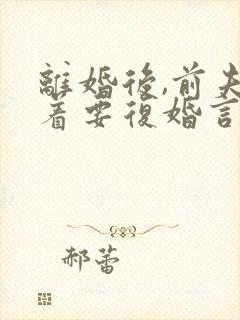 離婚後,前夫
着要復婚言
郝蕾